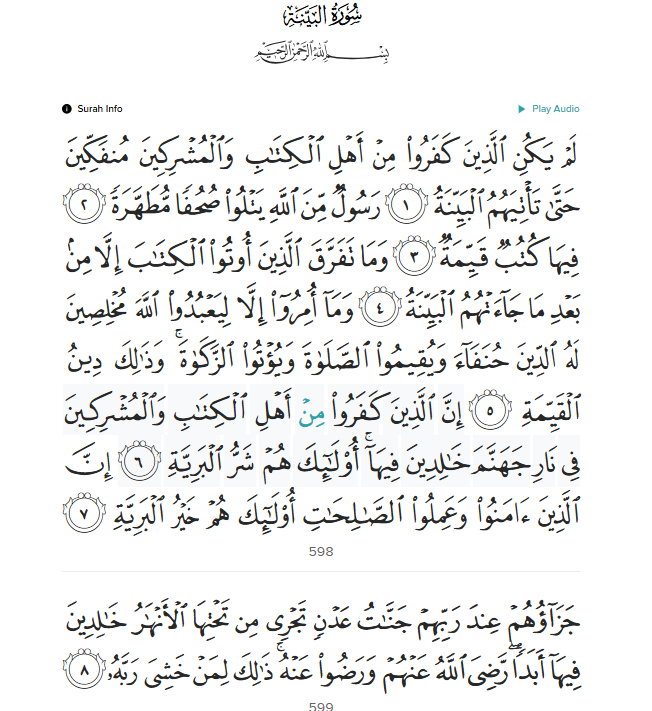 سُورَةُ البَيِّنَةِ
بِسْمِ اللَّهِ الرَّحْمَٰنِ الرَّحِيمِ
Surah Info
Play Audio
لَمْ يَكُنِ ٱلَّذِينَ كَفَرُوا۟ مِنْ أَهْلِ ٱلْكِتَـٰبِ وَٱلْمُشْرِكِينَ مُنفَكِّينَ
حَتَّىٰ تَأْتِيَهُمُ ٱلْبَيِّنَةُ ١ رَسُولٌ مِّنَ ٱللَّهِ يَتْلُوا۟ صُحُفًا مُّطَهَّرَةً ٢
فِيهَا كُتُبٌ قَيِّمَةٌ ٣ وَمَا تَفَرَّقَ ٱلَّذِينَ أُوتُوا۟ ٱلْكِتَـٰبَ إِلَّا مِنۢ
بَعْدِ مَا جَآءَتْهُمُ ٱلْبَيِّنَةُ ٤ وَمَآ أُمِرُوٓا۟ إِلَّا لِيَعْبُدُوا۟ ٱللَّهَ مُخْلِصِينَ
لَهُ ٱلدِّينَ حُنَفَآءَ وَيُقِيمُوا۟ ٱلصَّلَوٰةَ وَيُؤْتُوا۟ ٱلزَّكَوٰةَ ۚ وَذَٰلِكَ دِينُ
ٱلْقَيِّمَةِ ٥ إِنَّ ٱلَّذِينَ كَفَرُوا۟ مِنْ أَهْلِ ٱلْكِتَـٰبِ وَٱلْمُشْرِكِينَ
فِى نَارِ جَهَنَّمَ خَـٰلِدِينَ فِيهَآ ۚ أُو۟لَـٰٓئِكَ هُمْ شَرُّ ٱلْبَرِيَّةِ ٦ إِنَّ
ٱلَّذِينَ ءَامَنُوا۟ وَعَمِلُوا۟ ٱلصَّـٰلِحَـٰتِ أُو۟لَـٰٓئِكَ هُمْ خَيْرُ ٱلْبَرِيَّةِ ٧
598
جَزَآؤُهُمْ عِندَ رَبِّهِمْ جَنَّـٰتُ عَدْنٍ تَجْرِى مِن تَحْتِهَا ٱلْأَنْهَـٰرُ خَـٰلِدِينَ
فِيهَآ أَبَدًا ۖ رَّضِىَ ٱللَّهُ عَنْهُمْ وَرَضُوا۟ عَنْهُ ۚ ذَٰلِكَ لِمَنْ خَشِىَ رَبَّهُۥ ٨
599